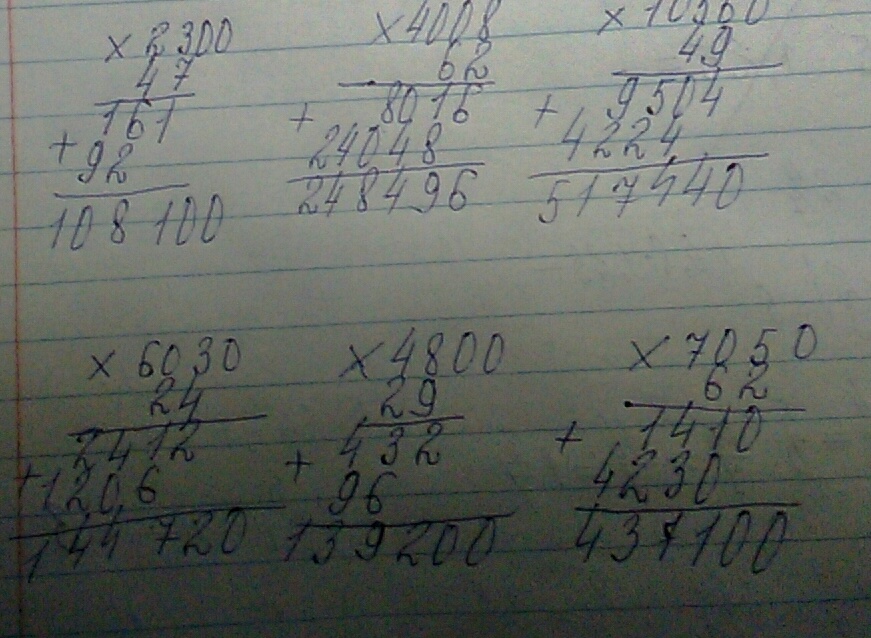 × 2300
47
161
+ 92
108100
× 4008
62
+ 8016
24048
248496
× 10560
49
+ 9504
4224
517440
× 6030
24
2412
+ 1206
144720
× 4800
29
+ 432
96
139200
× 7050
62
+ 1410
4230
437100